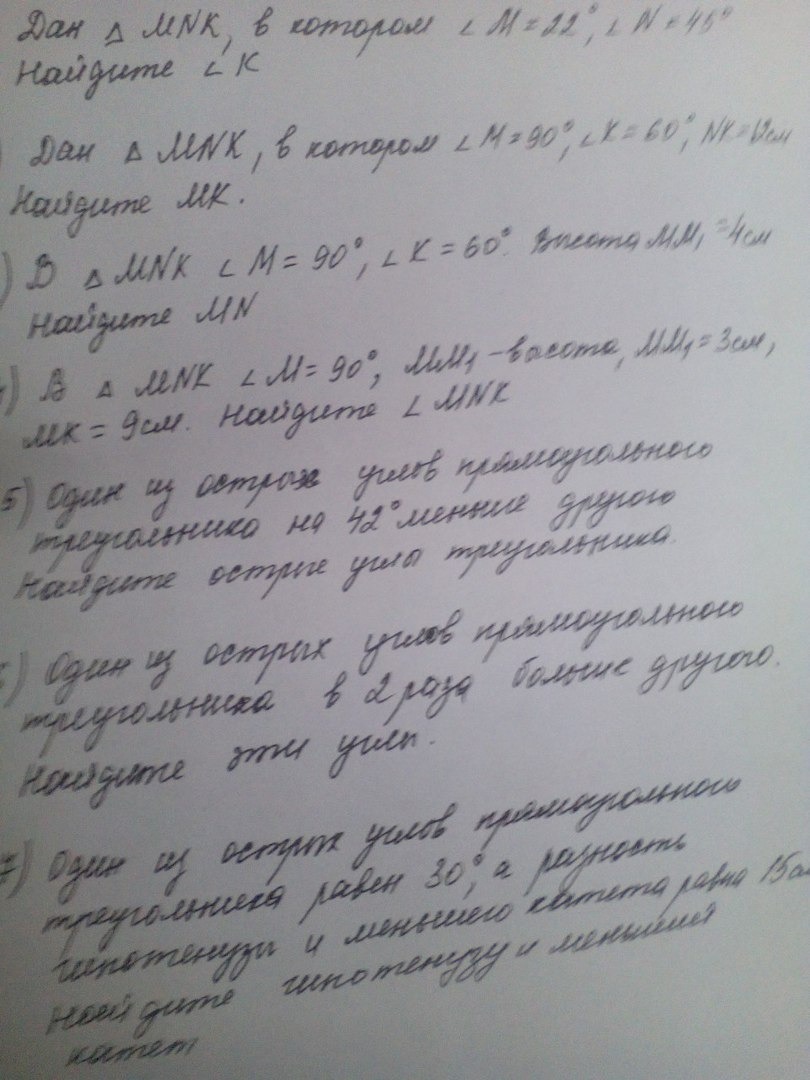 Дан △ MNK, в котором ∠ M = 22°, ∠ N = 45°
Найдите ∠ K
) Дан △ MNK, в котором ∠ M = 90°, ∠ K = 60°, NK = 12см
Найдите MK.
) В △ MNK ∠ M = 90°, ∠ K = 60°. Высота MM₁ = 4см
Найдите MN
) В △ MNK ∠ M = 90°, MM₁ - высота, MM₁ = 3см,
MK = 9см. Найдите ∠ MNK
5) Один из острых углов прямоугольного
треугольника на 42° меньше другого
Найдите острые углы треугольника.
) Один из острых углов прямоугольного
треугольника в 2 раза больше другого.
Найдите эти углы.
7) Один из острых углов прямоугольного
треугольника равен 30°, а разность
гипотенузы и меньшего катета равна 15см
Найдите гипотенузу и меньший
катет